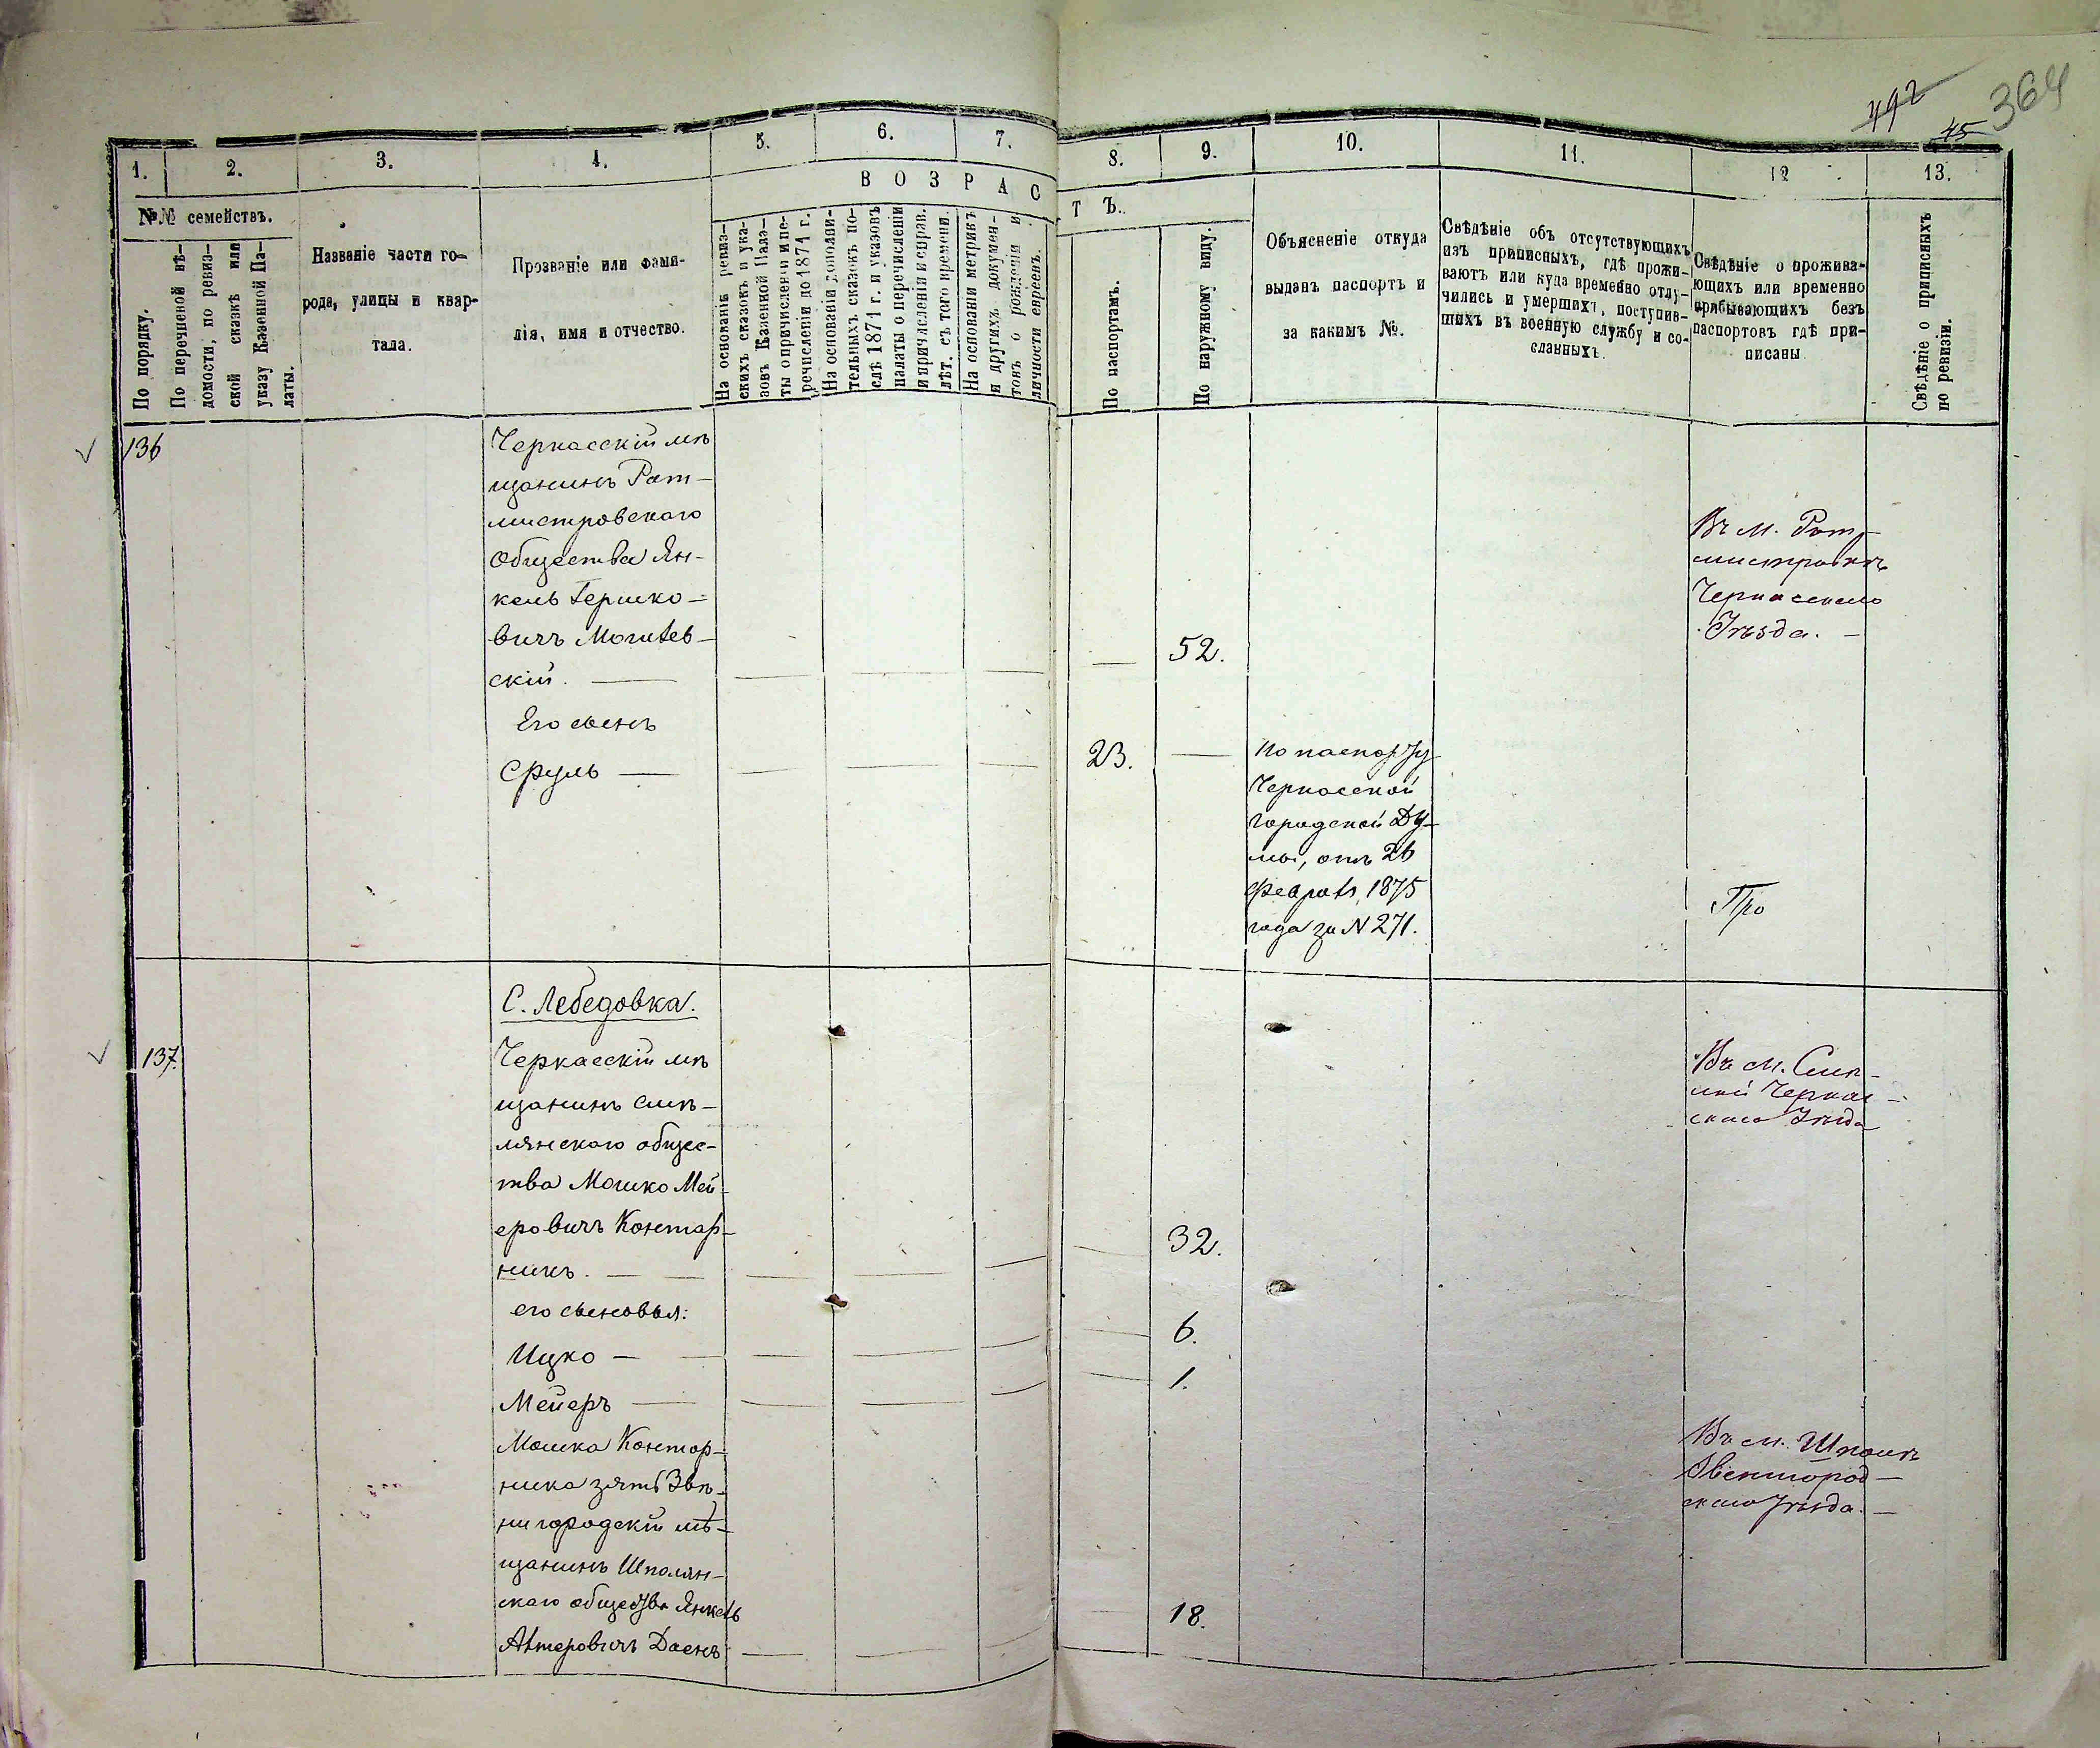 492
45
364
1.
2.
3.
4.
5.
6.
7.
8.
9.
10.
11.
12
13.
В О З Р А С
Т Ъ.
№№ семействъ.
По порядку.
По перечневой вѣ-
домости, по ревиз-
ской сказкѣ или
указу Казенной Па-
латы.
Названіе части го-
рода, улицы и квар-
тала.
Прозваніе или фами-
лія, имя и отчество.
На основаніи ревиз-
скихъ сказокъ и ука-
зовъ Казенной Пала-
ты о причисленіи и пе-
речисленіи до 1871 г.
На основаніи дополни-
тельныхъ сказокъ по-
слѣ 1871 г. и указовъ
палаты о перечисленіи
и причисленіи и справ.
лѣт. съ того времени.
На основаніи метрикъ
и другихъ докумен-
товъ о рожденіи и
личности евреевъ.
По паспортамъ.
По наружному виду.
Объясненіе откуда
выданъ паспортъ и
за какимъ №.
Свѣдѣніе объ отсутствующихъ
изъ приписныхъ, гдѣ прожи-
ваютъ или куда временно отлу-
чились и умершихъ, поступив-
шихъ въ военную службу и со-
сланныхъ.
Свѣдѣніе о прожива-
ющихъ или временно
прибывающихъ безъ
паспортовъ гдѣ при-
писаны
Свѣдѣніе о приписныхъ
по ревизіи.
136
Черкасскій мѣ
щанинъ Рот-
мистровскаго
Общества Ян-
кель Гершко-
вичъ Могилев-
скій.
52.
Въ м. Рот-
мистровкѣ
Черкасскаго
Уѣзда.
Его сынъ
Сруль
23.
По паспорту
Черкасской
городской Ду-
мы, отъ 26
февраля 1875
года за N 271.
Про
С. Лебедовка.
137.
Черкасскій мѣ
щанинъ Смѣ-
лянскаго общес-
тва Мошко Мей-
еровичъ Контар-
никъ.
32.
Въ м. Смѣ-
лой Черкас-
скаго Уѣзда
его сыновья:
Ицко
6.
Мейеръ
1.
Мошка Контор-
ника зять Зве-
нигородскій мѣ-
щанинъ Шполян-
скаго общества Янкель
Альтеровичъ Даенъ
18.
Въ м. Шполѣ
Звенигород-
скаго Уѣзда.